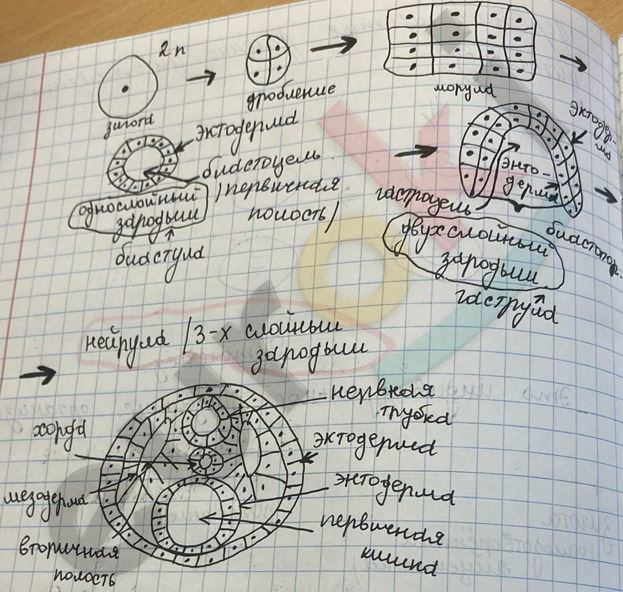 2n
зигота
дробление
морула
эктодерма
бластоцель
/первичная
полость/
однослойный
зародыш
бластула
эктодер-
ма
энто-
дерма
гастроцель
бластопор.
двухслойный
зародыш
гаструла
нейрула /3-х слойный
зародыш
нервная
трубка
хорда
эктодерма
мезодерма
энтодерма
вторичная
полость
первичная
кишка